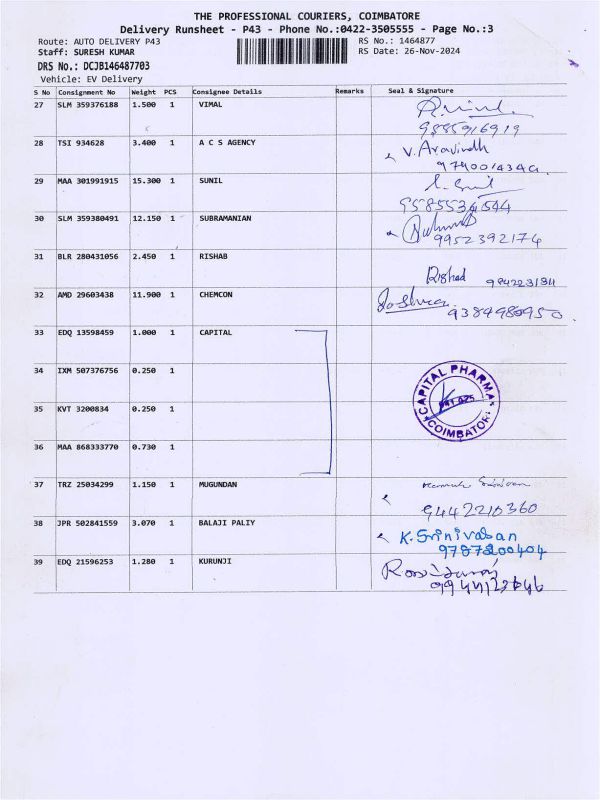 THE PROFESSIONAL COURIERS, COIMBATORE
Delivery Runsheet - P43 - Phone No.:0422-3505555 - Page No.:3
Route: AUTO DELIVERY P43 RS No.: 1464877
Staff: SURESH KUMAR RS Date: 26-Nov-2024
DRS No.: DCJB146487703
Vehicle: EV Delivery
S No Consignment No Weight PCS Consignee Details Remarks Seal & Signature
27 SLM 359376188 1.500 1 VIMAL
9885916919
28 TSI 934628 3.400 1 A C S AGENCY V. Aravindh
29 MAA 301991915 15.300 1 SUNIL
30 SLM 359380491 12.150 1 SUBRAMANIAN
9952392174
31 BLR 280431056 2.450 1 RISHAB
Rishad
32 AMD 29603438 11.900 1 CHEMCON
9384980950
33 EDQ 13598459 1.000 1 CAPITAL
34 IXM 507376756 0.250 1
CAPITAL PHARMA
COIMBATORE
35 KVT 3200834 0.250 1
36 MAA 868333770 0.730 1
37 TRZ 25034299 1.150 1 MUGUNDAN
9442210360
38 JPR 502841559 3.070 1 BALAJI PALIY K. Srinivasan
9787200404
39 EDQ 21596253 1.280 1 KURUNJI